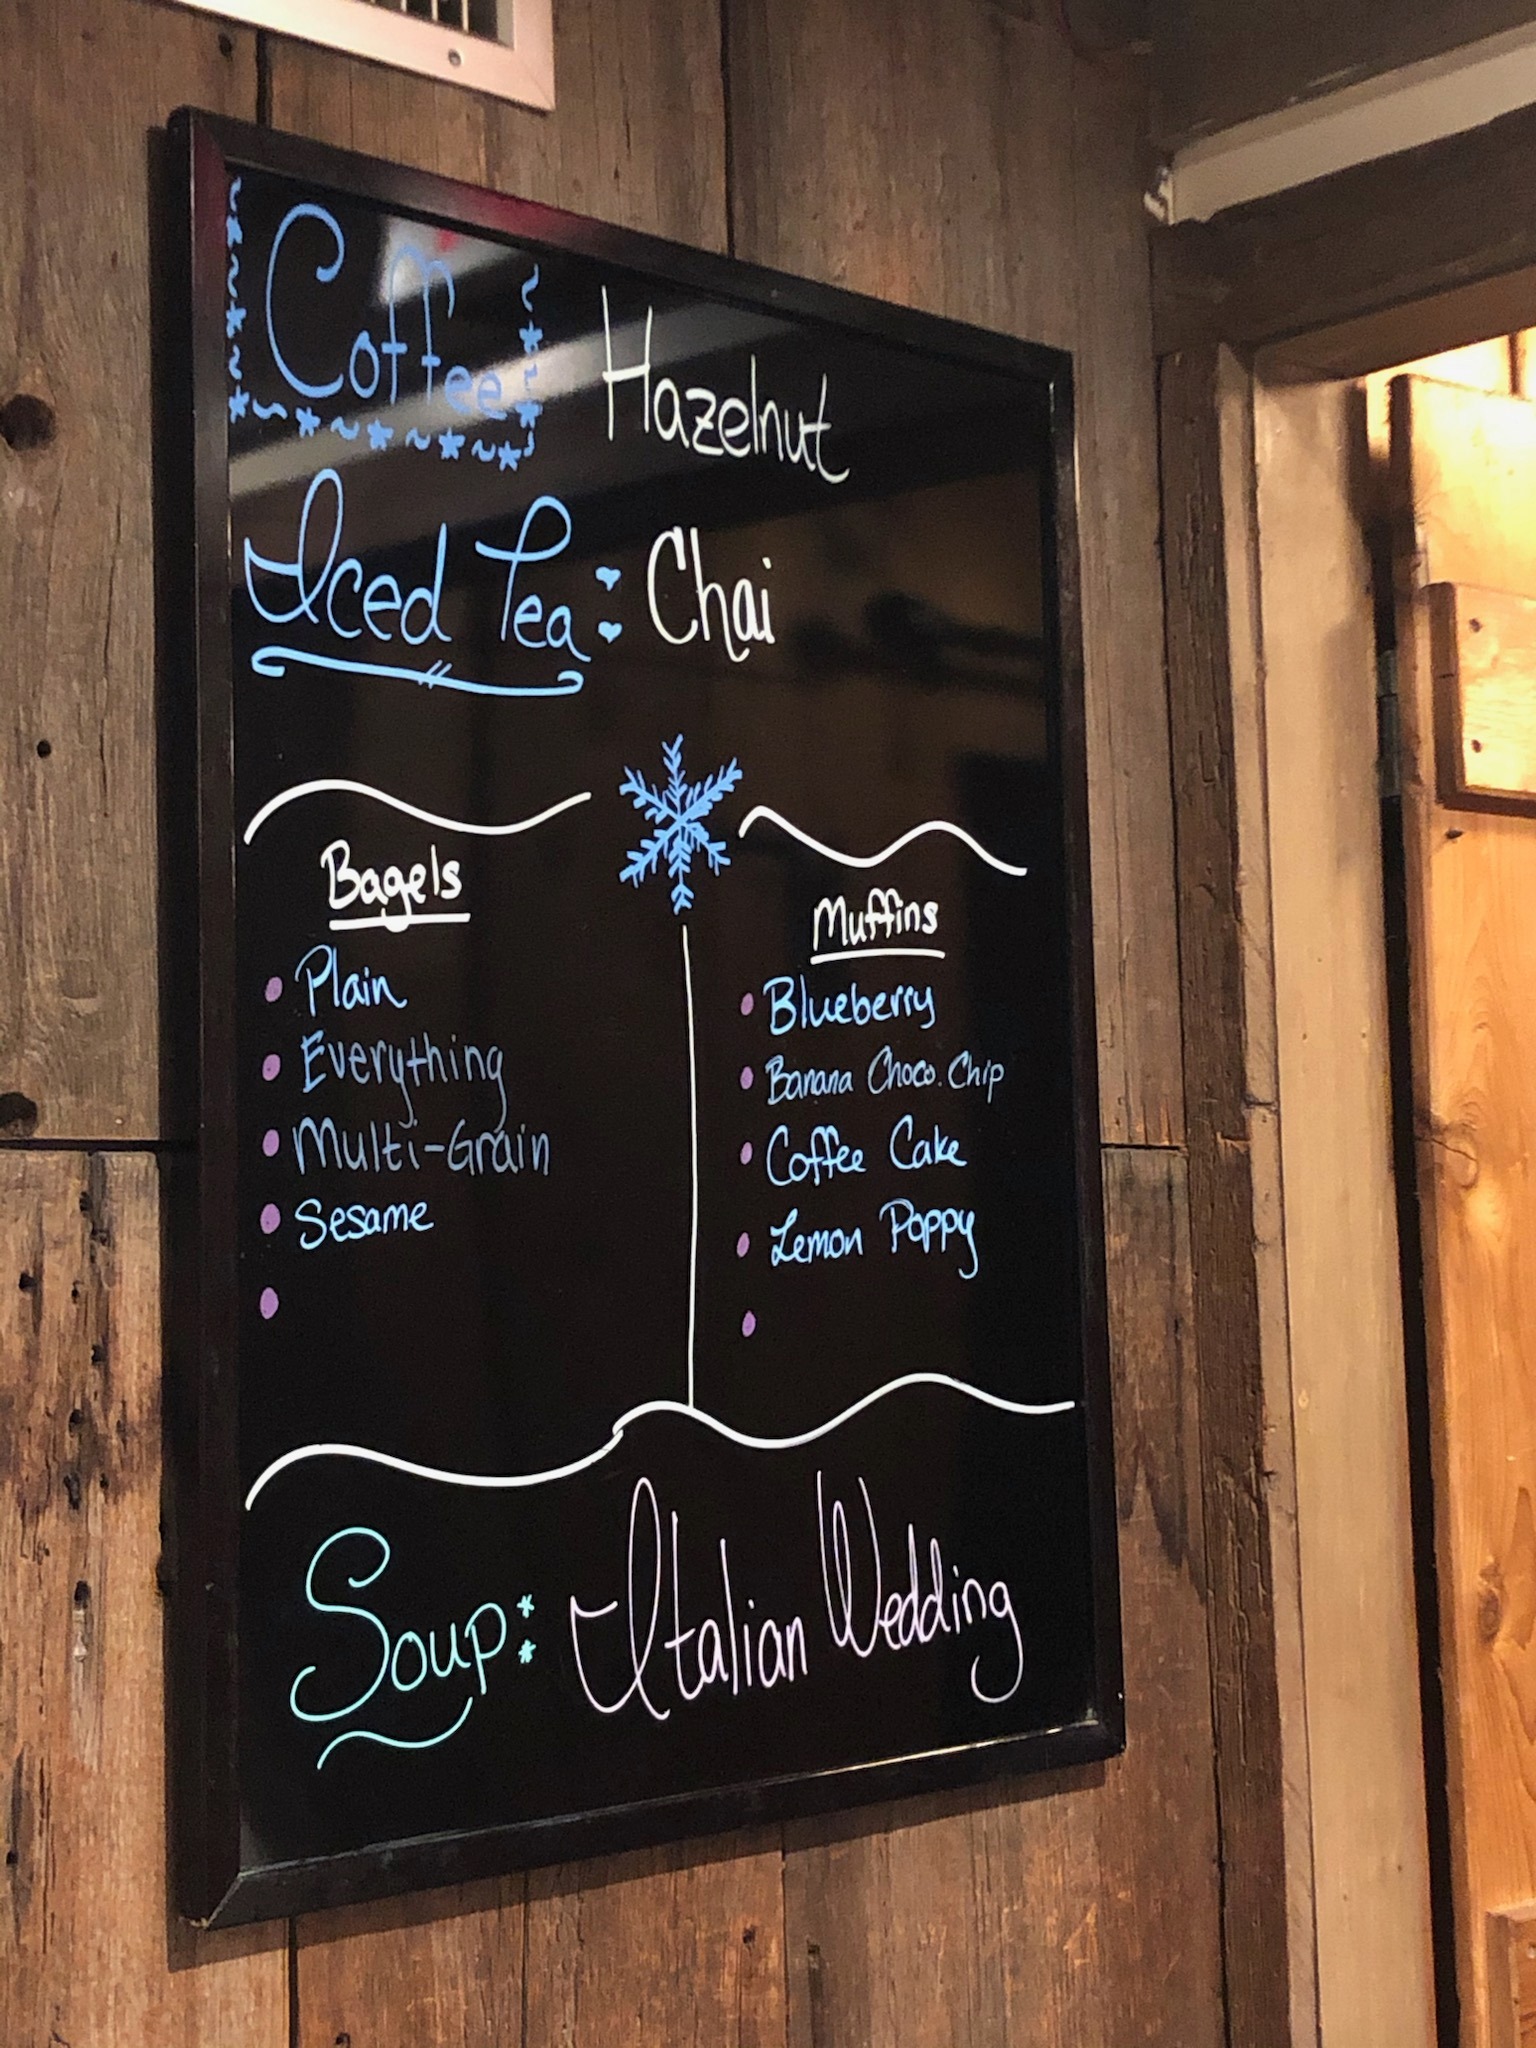 Coffee Hazelnut
Iced Tea: Chai
Bagels
Plain
Everything
Multi-Grain
Sesame
Muffins
Blueberry
Banana Choco. Chip
Coffee Cake
Lemon Poppy
Soup: Italian Wedding